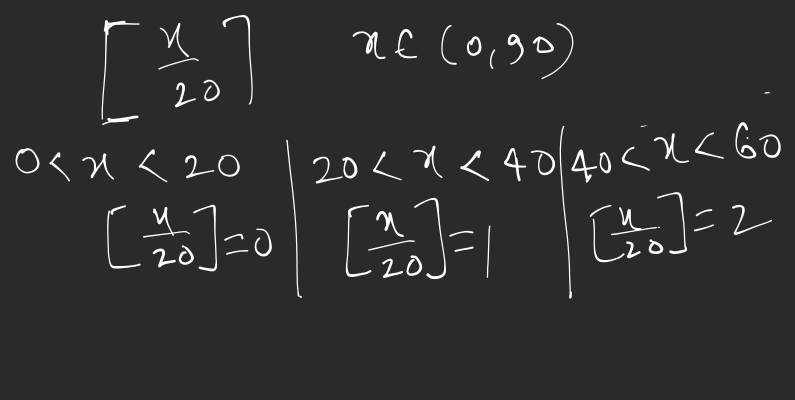 [x/20] x ∈ (0,90)
0<x<20 | 20<x<40 | 40<x<60
[x/20]=0 | [x/20]=1 | [x/20]=2